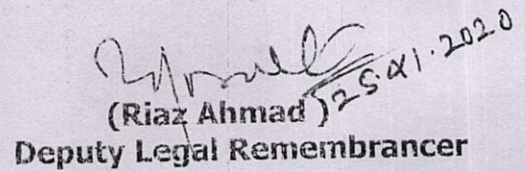 25.XI.2020
(Riaz Ahmad)
Deputy Legal Remembrancer